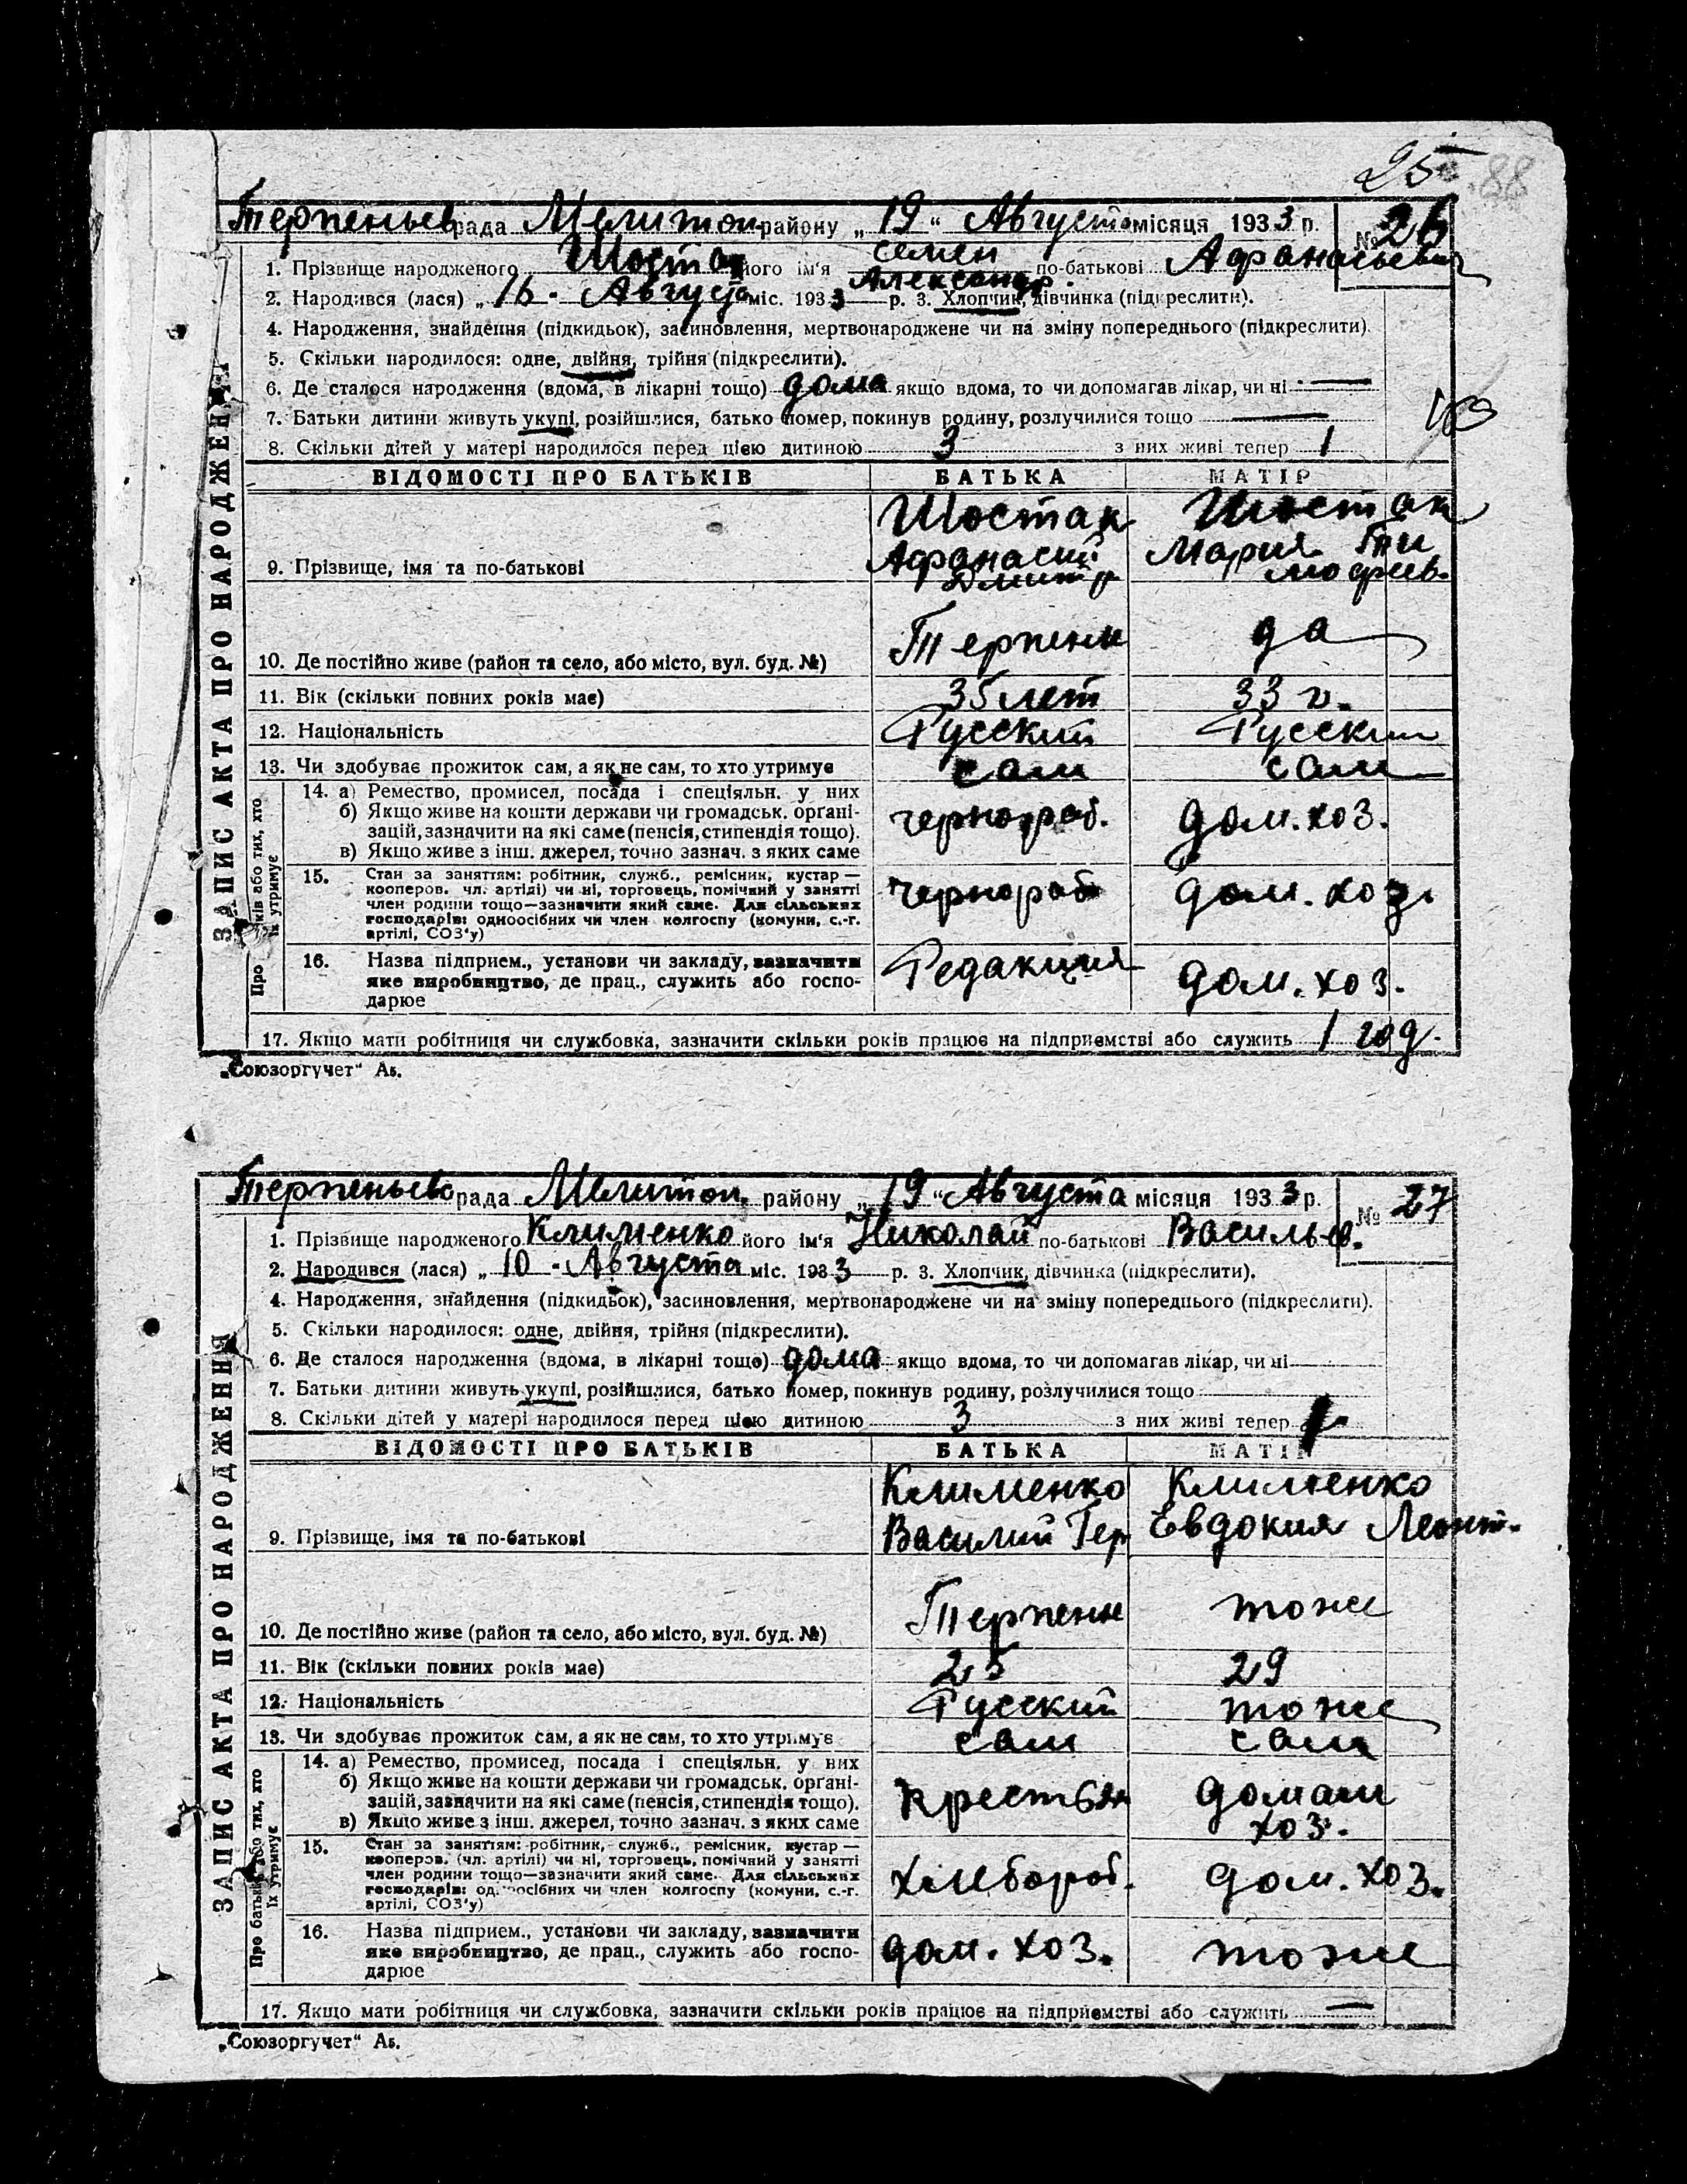 25
88
Терпеньев рада Мелитоп району „19“ Августа місяця 1933 р. № 26
1. Прізвище народженого Шостак його ім'я Семен Александр. по-батькові Афанасьевич
2. Народився (лася) „16 - Августа міс. 1933 р. 3. Хлопчик, дівчинка (підкреслити).
4. Народження, знайдення (підкидьок), засиновлення, мертвонароджене чи на зміну попереднього (підкреслити).
5. Скільки народилося: одне, двійня, трійня (підкреслити).
6. Де сталося народження (вдома, в лікарні тощо) дома якщо вдома, то чи допомагав лікар, чи ні —
7. Батьки дитини живуть укупі, розійшлися, батько помер, покинув родину, розлучилися тощо —
8. Скільки дітей у матері народилося перед цією дитиною 3 з них живі тепер 1
ВІДОМОСТІ ПРО БАТЬКІВ БАТЬКА МАТІР
9. Прізвище, імя та по-батькові Шостак Афанасий Дмитр Шостак Мария Тимофеев.
10. Де постійно живе (район та село, або місто, вул. буд. №) Терпень да
11. Вік (скільки повних років має) 35 лет 33 г.
12. Національність Русский Русским
13. Чи здобуває прожиток сам, а як не сам, то хто утримує сам сам
14. а) Ремество, промисел, посада і спеціяльн. у них
б) Якщо живе на кошти держави чи громадськ. органі-
зацій, зазначити на які саме (пенсія, стипендія тощо).
в) Якщо живе з інш. джерел, точно зазнач. з яких саме
чернораб. дом. хоз.
15. Стан за заняттям: робітник, служб., ремісник, кустар —
кооперов. чл. артілі) чи ні, торговець, помічний у занятті
член родини тощо—зазначити який саме. Для сільських
господарів: одноосібних чи член колгоспу (комуни, с.-г.
артілі, СОЗ'у)
чернораб дом. хоз.
16. Назва підприєм., установи чи закладу, зазначити
яке виробництво, де прац., служить або госпо-
дарює
Редакция дом. хоз.
17. Якщо мати робітниця чи службовка, зазначити скільки років працює на підприємстві або служить 1 год.
ЗАПИС АКТА ПРО НАРОДЖЕННЯ
„Союзоргучет“ Аб.
Терпеньево рада Мелитоп. району „19“ Августа місяця 1933 р. № 27
1. Прізвище народженого Клименко його ім'я Николай по-батькові Васильев.
2. Народився (лася) „10 - Августа міс. 1933 р. 3. Хлопчик, дівчинка (підкреслити).
4. Народження, знайдення (підкидьок), засиновлення, мертвонароджене чи на зміну попереднього (підкреслити).
5. Скільки народилося: одне, двійня, трійня (підкреслити).
6. Де сталося народження (вдома, в лікарні тощо) дома якщо вдома, то чи допомагав лікар, чи ні
7. Батьки дитини живуть укупі, розійшлися, батько помер, покинув родину, розлучилися тощо
8. Скільки дітей у матері народилося перед цією дитиною 3 з них живі тепер
ВІДОМОСТІ ПРО БАТЬКІВ БАТЬКА МАТІР
9. Прізвище, імя та по-батькові Клименко Василий Гер Клименко Евдокия Леонт.
10. Де постійно живе (район та село, або місто, вул. буд. №) Терпень тоже
11. Вік (скільки повних років має) 25 29
12. Національність Русский тоже
13. Чи здобуває прожиток сам, а як не сам, то хто утримує сам сам
14. а) Ремество, промисел, посада і спеціяльн. у них
б) Якщо живе на кошти держави чи громадськ. органі-
зацій, зазначити на які саме (пенсія, стипендія тощо).
в) Якщо живе з інш. джерел, точно зазнач. з яких саме
крестьян домаш хоз.
15. Стан за заняттям: робітник, служб., ремісник, кустар —
кооперов. (чл. артілі) чи ні, торговець, помічний у занятті
член родини тощо—зазначити який саме. Для сільських
господарів: одноосібних чи член колгоспу (комуни, с.-г.
артілі, СОЗ'у)
хлебороб. дом. хоз.
16. Назва підприєм., установи чи закладу, зазначити
яке виробництво, де прац., служить або госпо-
дарює
дом. хоз. тоже
17. Якщо мати робітниця чи службовка, зазначити скільки років працює на підприємстві або служить —
ЗАПИС АКТА ПРО НАРОДЖЕННЯ
Про батьків або тих, хто їх утримує
„Союзоргучет“ Аб.